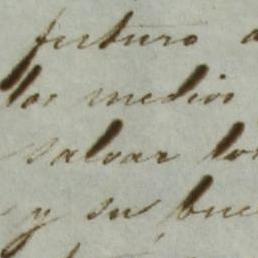 futuro
los medios
salvar los
y su bue